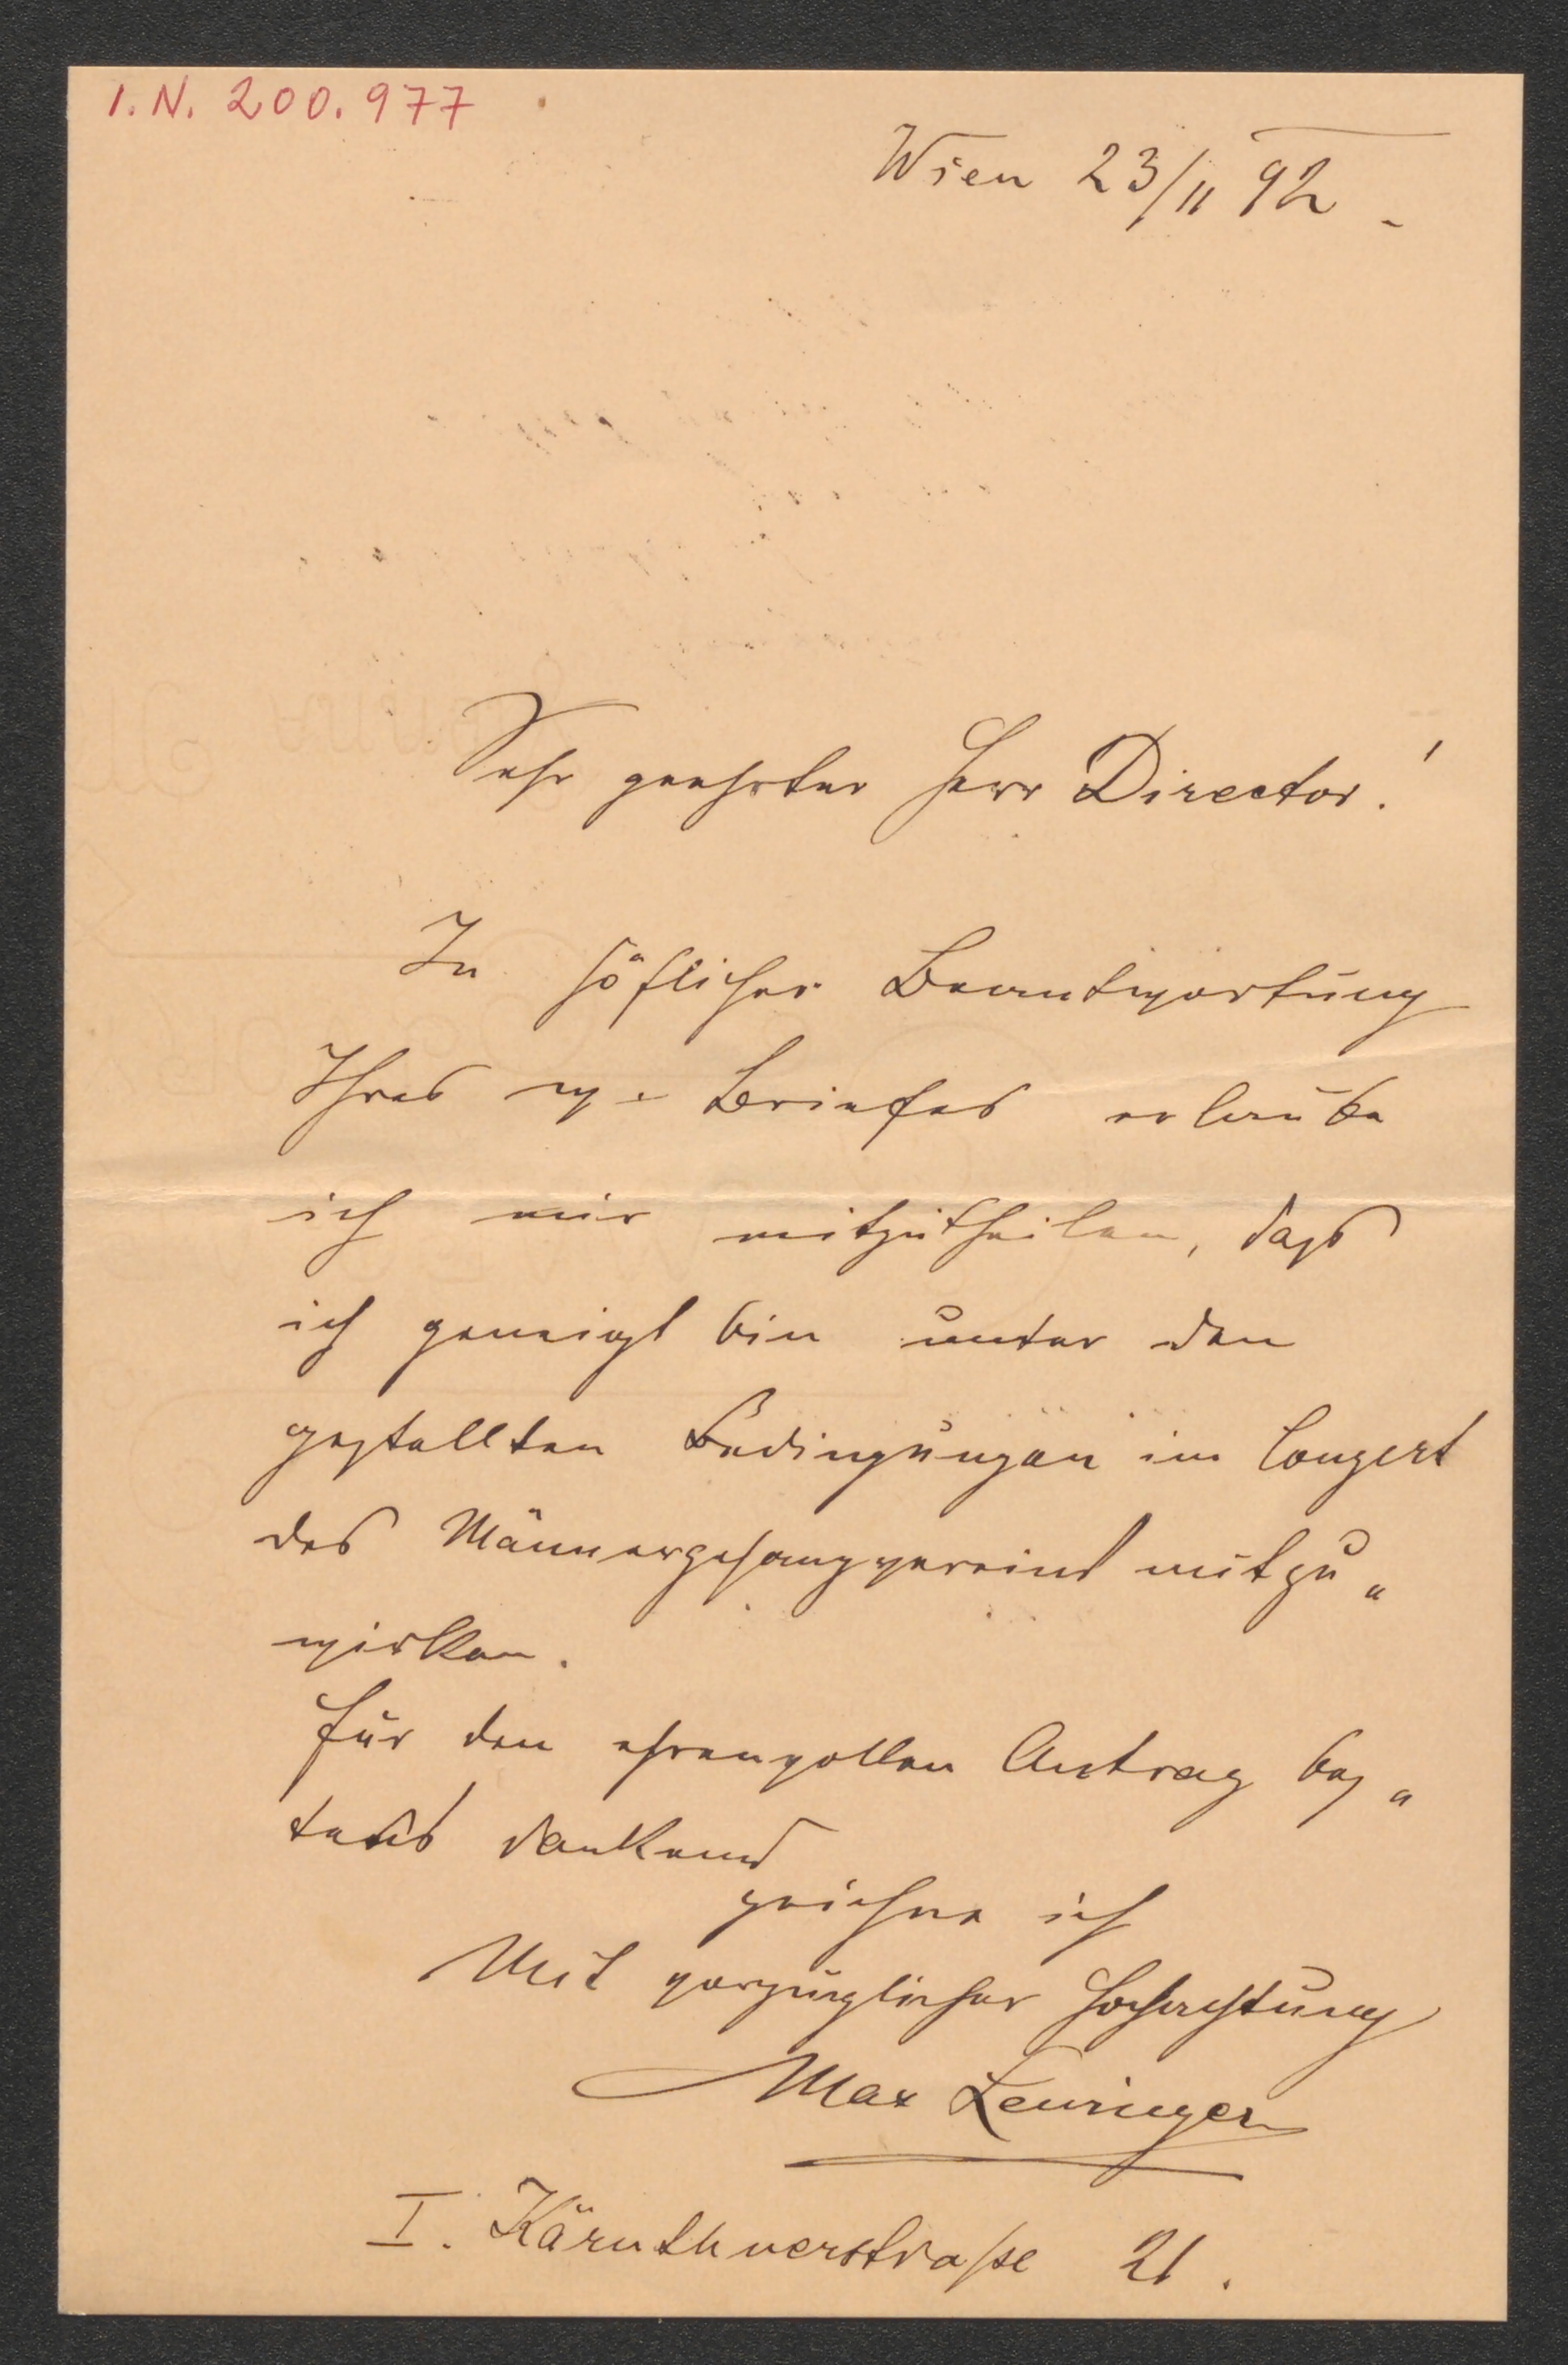 I.N. 200.977
Wien 23/II 92.
Sehr geehrter Herr Director!
In höflicher Beantwortung
Ihres w. Briefes erlaube
ich mir mitzutheilen, dass
ich geneigt bin unter den
gestellten Bedingungen im Conzert
des Männergesangvereins mitzu„
wirken.
Für den ehrenvollen Antrag bes„
tens dankend
zeichne ich
Mit vorzüglicher Hochachtung
Max
I. Kärnthnerstraße 21.